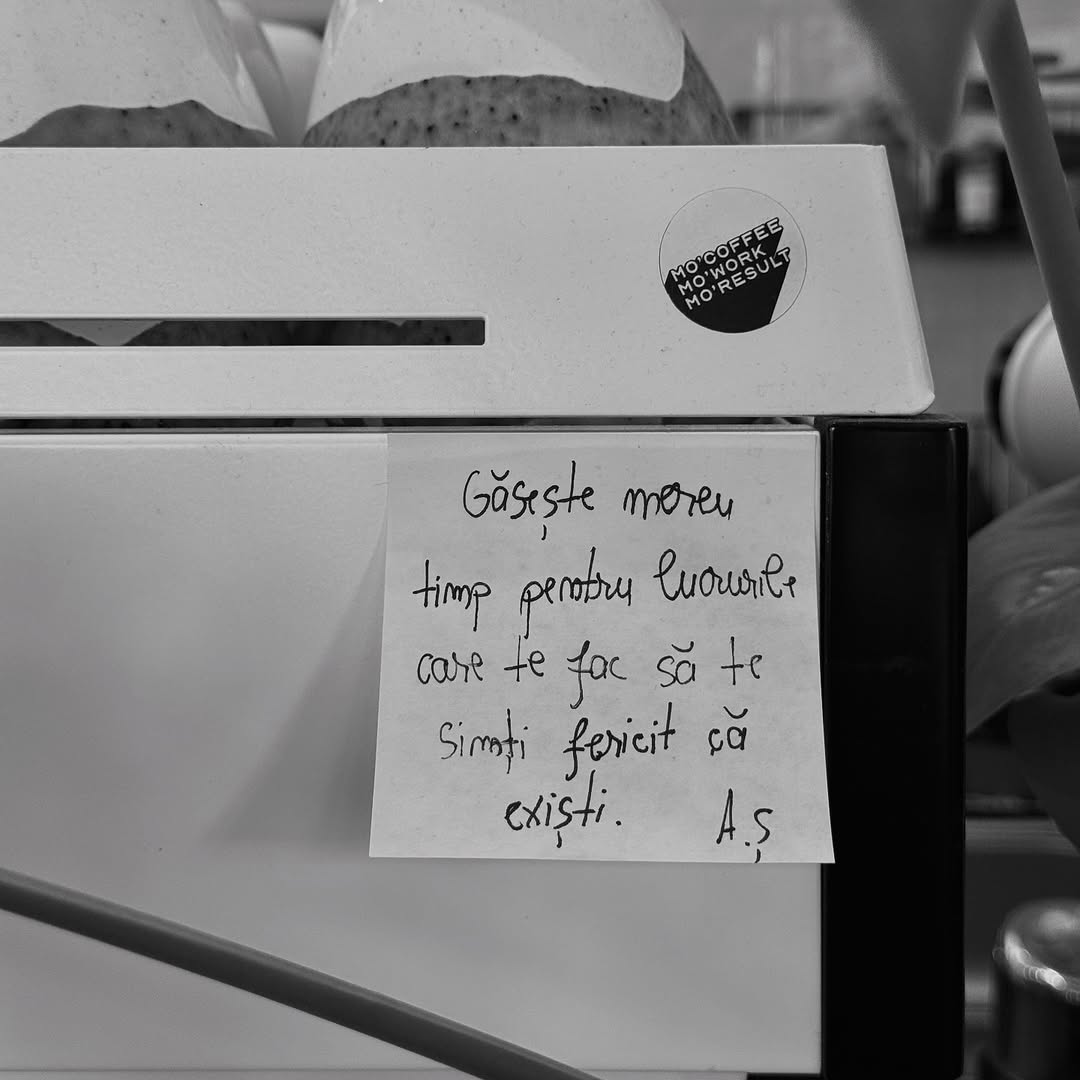 MO'COFFEE
MO'WORK
MO'RESULT
Găsește mereu
timp pentru lucrurile
care te fac să te
simți fericit că
existi.
A.Ș